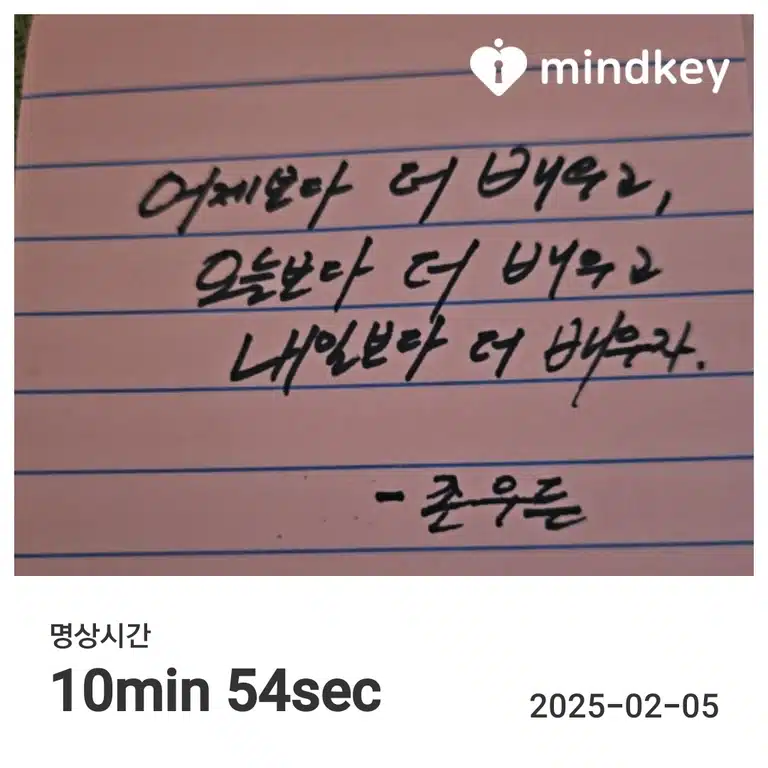 mindkey
어제보다 더 배우고,
오늘보다 더 배우고
내일보다 더 배우자.
- 존 우든
명상시간
10min 54sec
2025-02-05